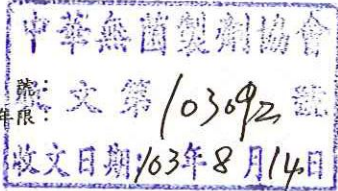 中華無菌製劑協會
號:
文第103092號
年限:
收文日期:103年8月14日